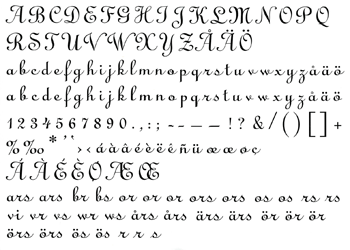 ABCDEFGHIJKLMNOPQ
RSTUVWXYZÅÄÖ
abcdefghijklmnopqrstuvwxyzåäö
abcdefghijklmnopqrstuvwxyzåäö
1234567890.,:; - – — — !?&/()[]+
%‰*’‘›‹áàâéèëêñüæœoç
ÁÀÉÈOÆŒ
ars ars br bs or or or ors ors os os rs rs
vi vr vs wr ws års års ärs ärs ör ör ör
örs örs ös ös r r s